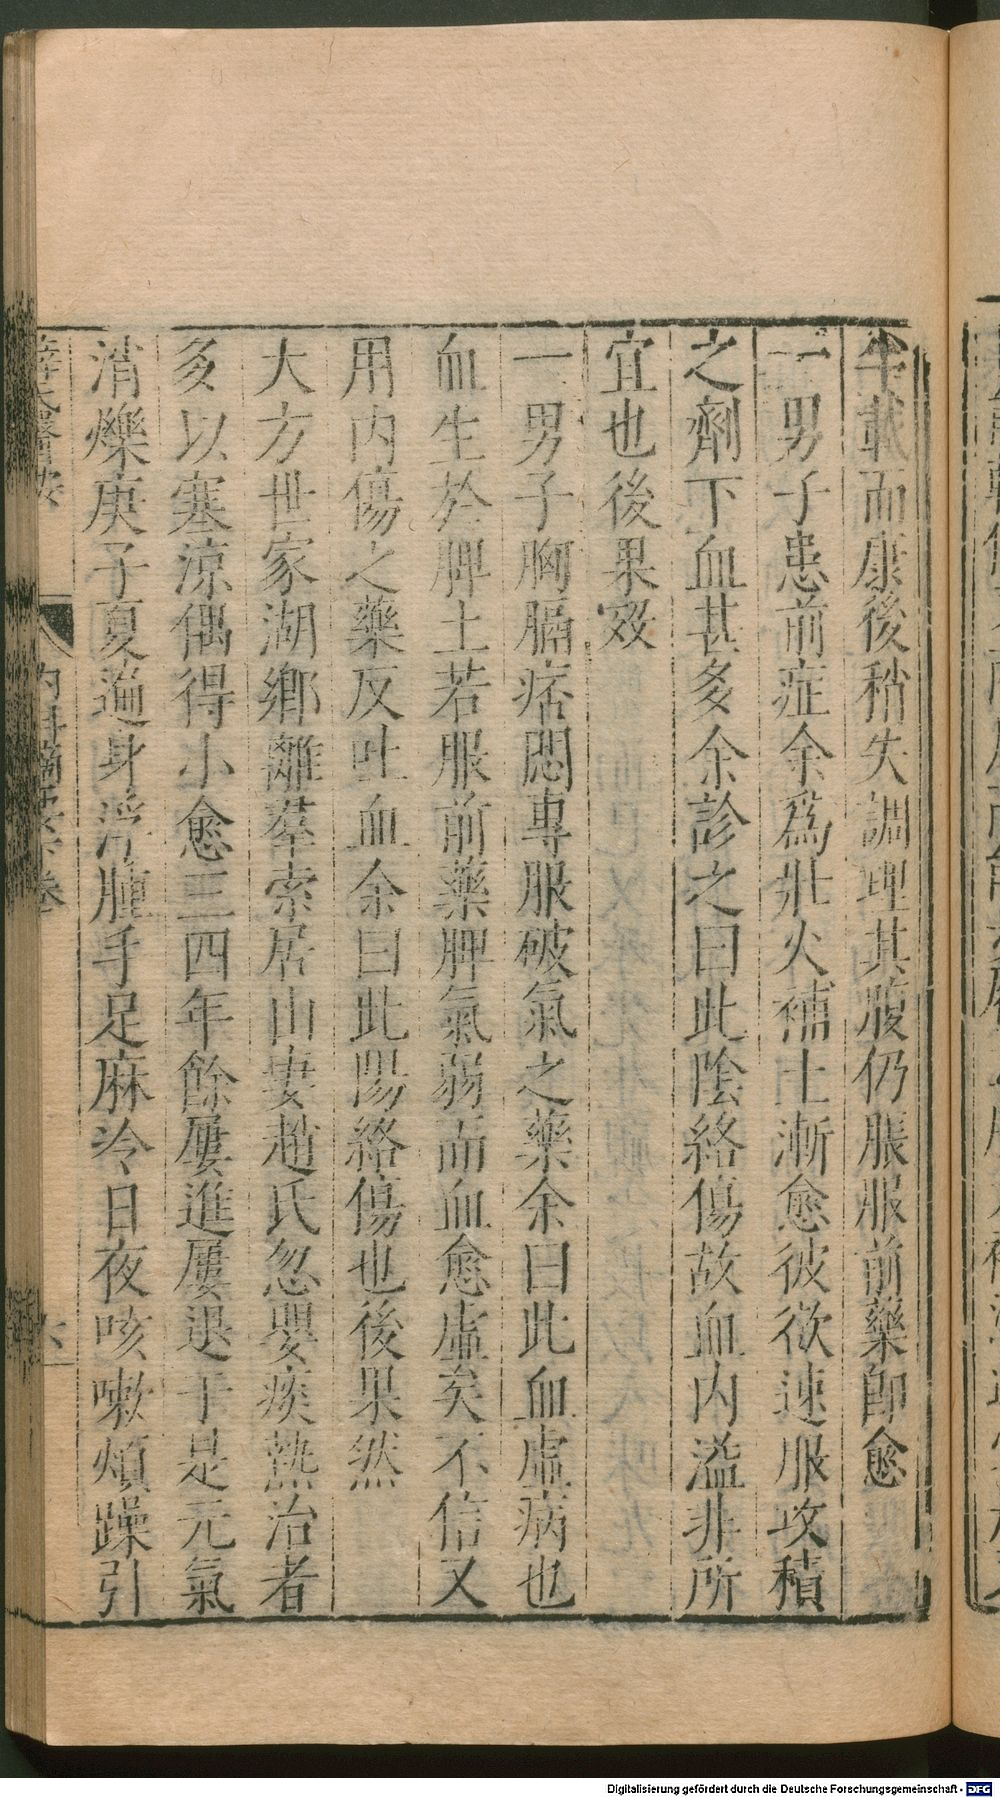 半載而康後稍失調理其腹仍脹服前藥卽愈
一男子患前症余爲壯火補土漸愈彼欲速服攻積
之劑下血甚多余診之曰此陰絡傷故血內溢非所
宜也後果效
一男子胸膈痞悶專服破氣之藥余曰此血虛病也
血生於脾土若服前藥脾氣弱而血愈虛矣不信又
用內傷之藥反吐血余曰此陽絡傷也後果然
大方世家湖鄉離羣索居山妻趙氏忽嬰痰熱治者
多以寒涼偶得小愈三四年餘屢進屢退于是元氣
消爍庚子夏遍身浮腫手足麻冷日夜咳嗽煩躁引
薛氏醫按
內科摘要下卷
六
Digitalisierung gefördert durch die Deutsche Forschungsgemeinschaft - DFG